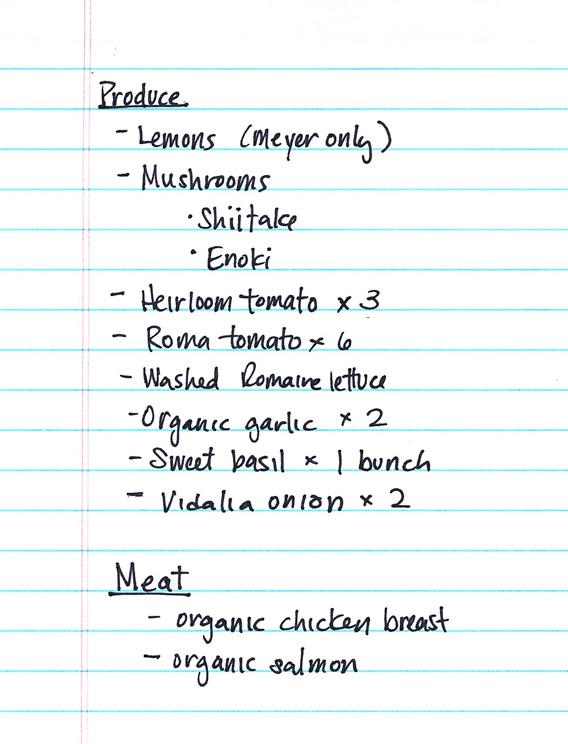 Produce
- Lemons (Meyer only)
- Mushrooms
· Shiitake
· Enoki
- Heirloom tomato x 3
- Roma tomato x 6
- Washed Romaine lettuce
- Organic garlic x 2
- Sweet basil x 1 bunch
- Vidalia onion x 2
Meat
- organic chicken breast
- organic salmon